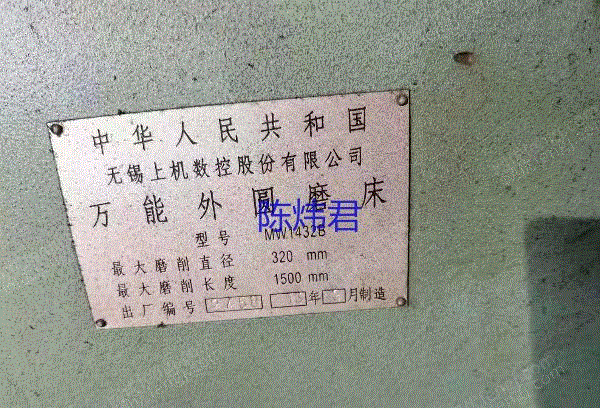 中华人民共和国
无锡上机数控股份有限公司
万能外圆磨床
陈炜君
型号 MW1432B
最大磨削直径 320 mm
最大磨削长度 1500 mm
出厂编号 年 月制造